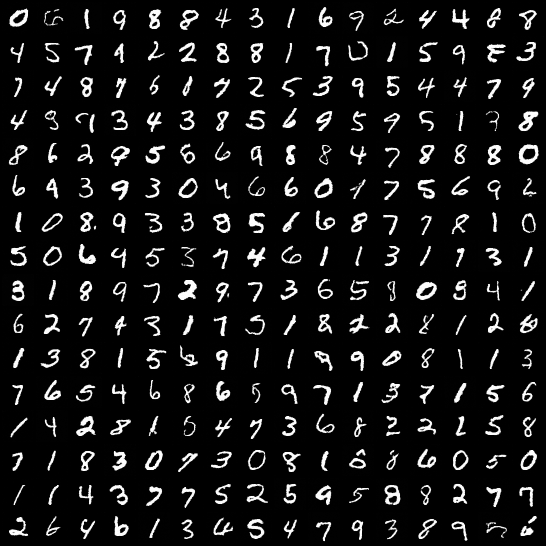 0 6 1 9 8 8 4 3 1 6 9 2 4 4 8 8
4 5 7 4 2 2 8 8 1 7 0 1 5 9 8 3
7 4 8 7 6 1 7 2 5 3 9 5 4 4 7 9
4 9 7 3 4 3 8 5 6 9 5 9 5 1 7 8
8 6 2 9 5 6 6 9 8 8 4 7 8 8 8 0
6 9 3 9 3 0 4 6 6 0 1 7 5 6 9 2
1 0 8 9 3 3 8 5 1 6 8 7 7 8 1 0
5 0 6 9 5 3 7 4 6 1 1 3 1 7 3 1
3 1 8 9 7 2 9 7 3 6 5 8 0 9 4 1
6 2 7 4 3 1 7 5 1 8 2 2 8 1 2 8
1 3 8 1 5 6 9 1 1 9 9 0 8 1 1 3
7 6 5 4 6 8 6 5 9 7 1 3 7 1 5 6
1 4 2 8 1 5 4 7 3 6 8 2 2 1 5 8
7 1 8 3 0 7 3 0 8 1 8 8 6 0 5 0
1 1 4 3 7 7 5 2 5 9 5 8 8 2 7 7
2 6 4 6 1 3 4 5 4 7 9 3 8 9 6